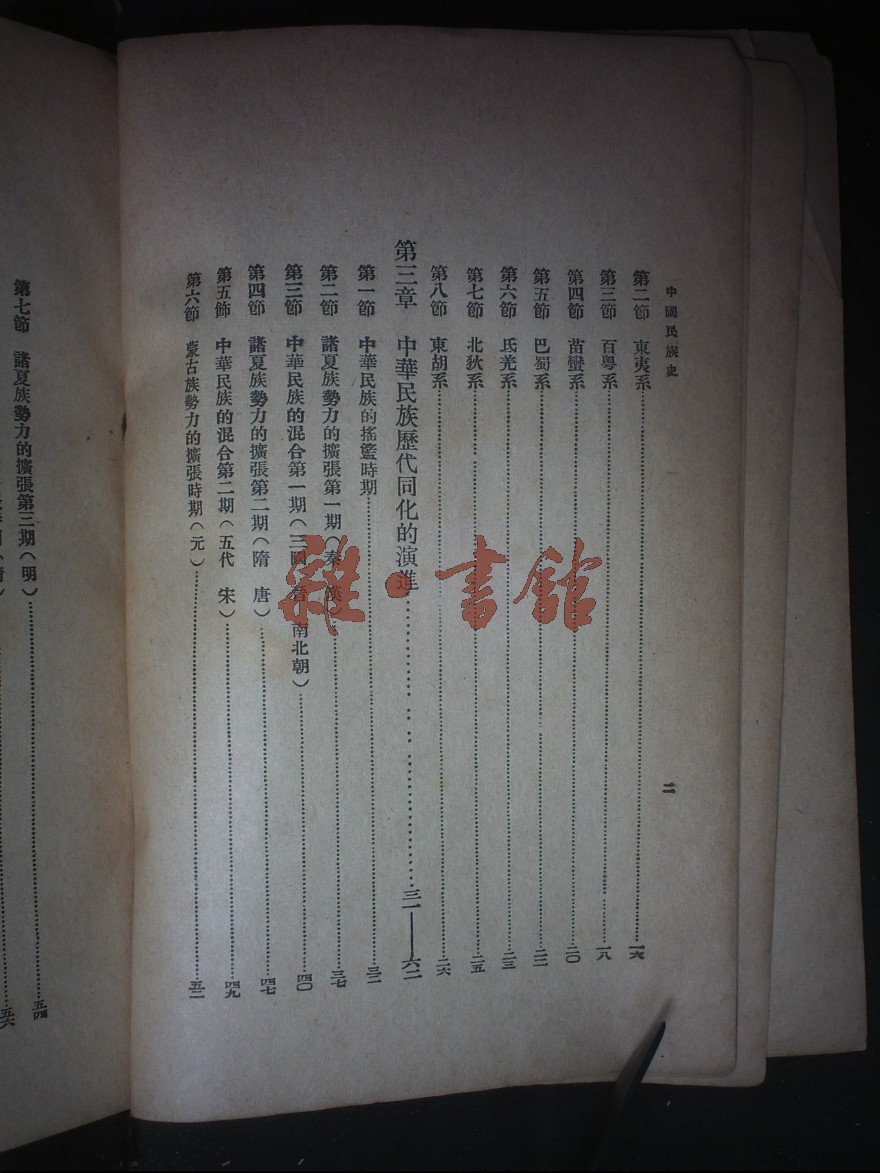 中國民族史
二
第二節　東夷系………一六
第三節　百粵系………一八
第四節　苗蠻系………二〇
第五節　巴蜀系………二二
第六節　氐羌系………二三
第七節　北狄系………二五
第八節　東胡系………二六
第三章　中華民族歷代同化的演進………三一——六二
第一節　中華民族的搖籃時期………三二
第二節　諸夏族勢力的擴張第一期（秦　漢）………三七
第三節　中華民族的混合第一期（三國　晉　南北朝）………四〇
第四節　諸夏族勢力的擴張第二期（隋　唐）………四七
第五節　中華民族的混合第二期（五代　宋）………四九
第六節　蒙古族勢力的擴張時期（元）………五二
第七節　諸夏族勢力的擴張第三期（明）………五四
五六
雜·書館